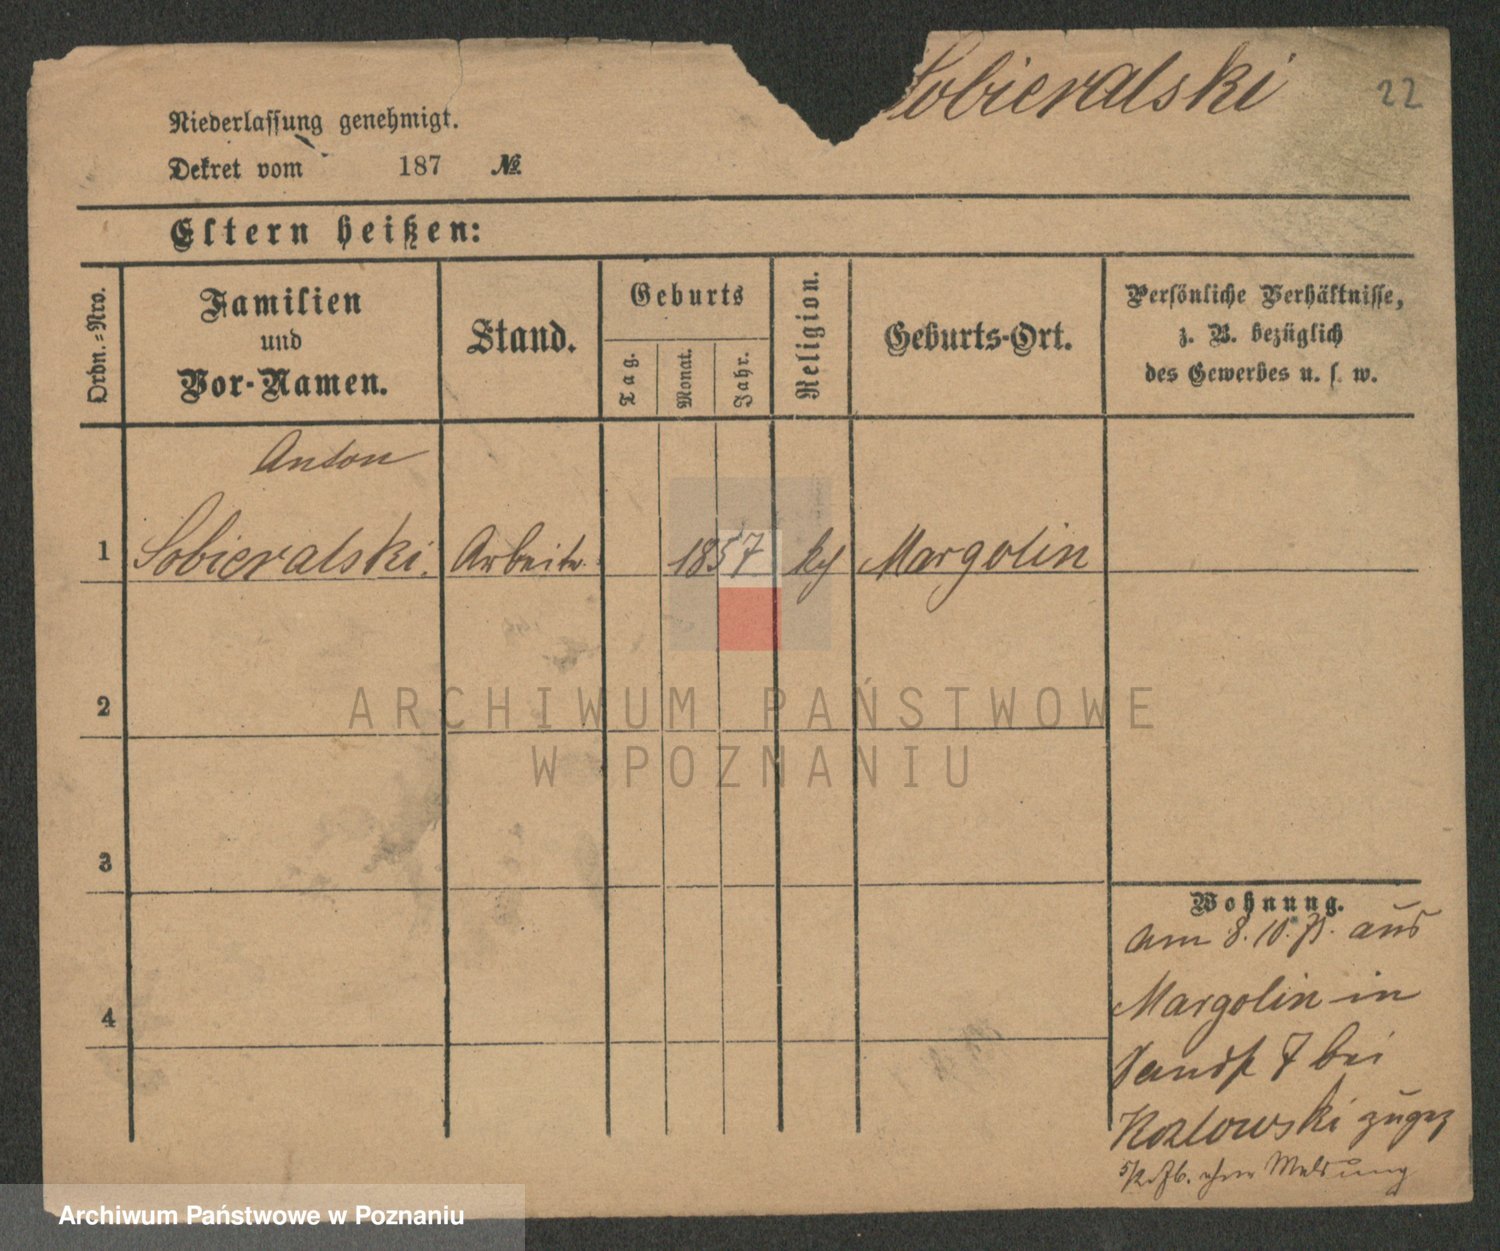 Sobieralski
22
Niederlassung genehmigt.
Dekret vom 187 №
Eltern heißen:
Ordn.=Nro.
Familien
und
Vor-Namen.
Stand.
Geburts
Tag.
Monat.
Jahr.
Religion.
Geburts-Ort.
Persönliche Verhältnisse,
z. B. bezüglich
des Gewerbes u. s. w.
Anton
1 Sobieralski. Arbeitr. 1857 Margolin
2
3
4
Wohnung.
am 8. 10. aus
Margolin in
7 bei
Kozlowski zugez
ohne Meldung
ARCHIWUM PAŃSTWOWE
W POZNANIU
Archiwum Państwowe w Poznaniu